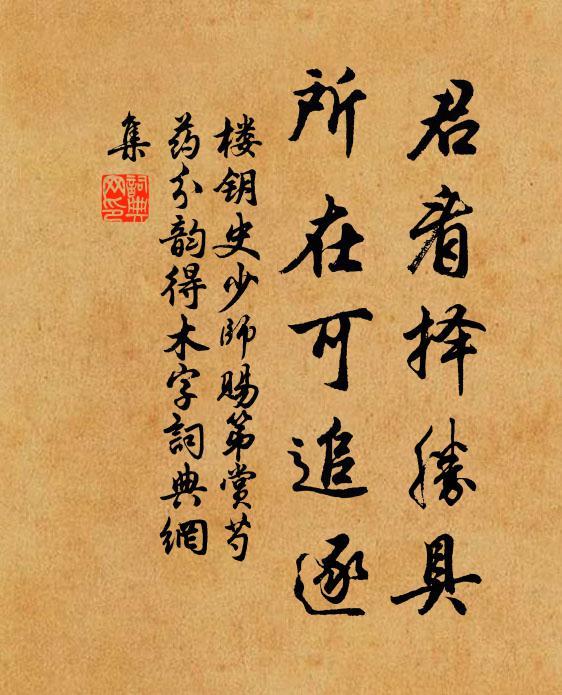 君看择勝具
所在可追逐
楼钥史少师赐第赏芍
药分韵得木字詞典網
集
詞典
网印